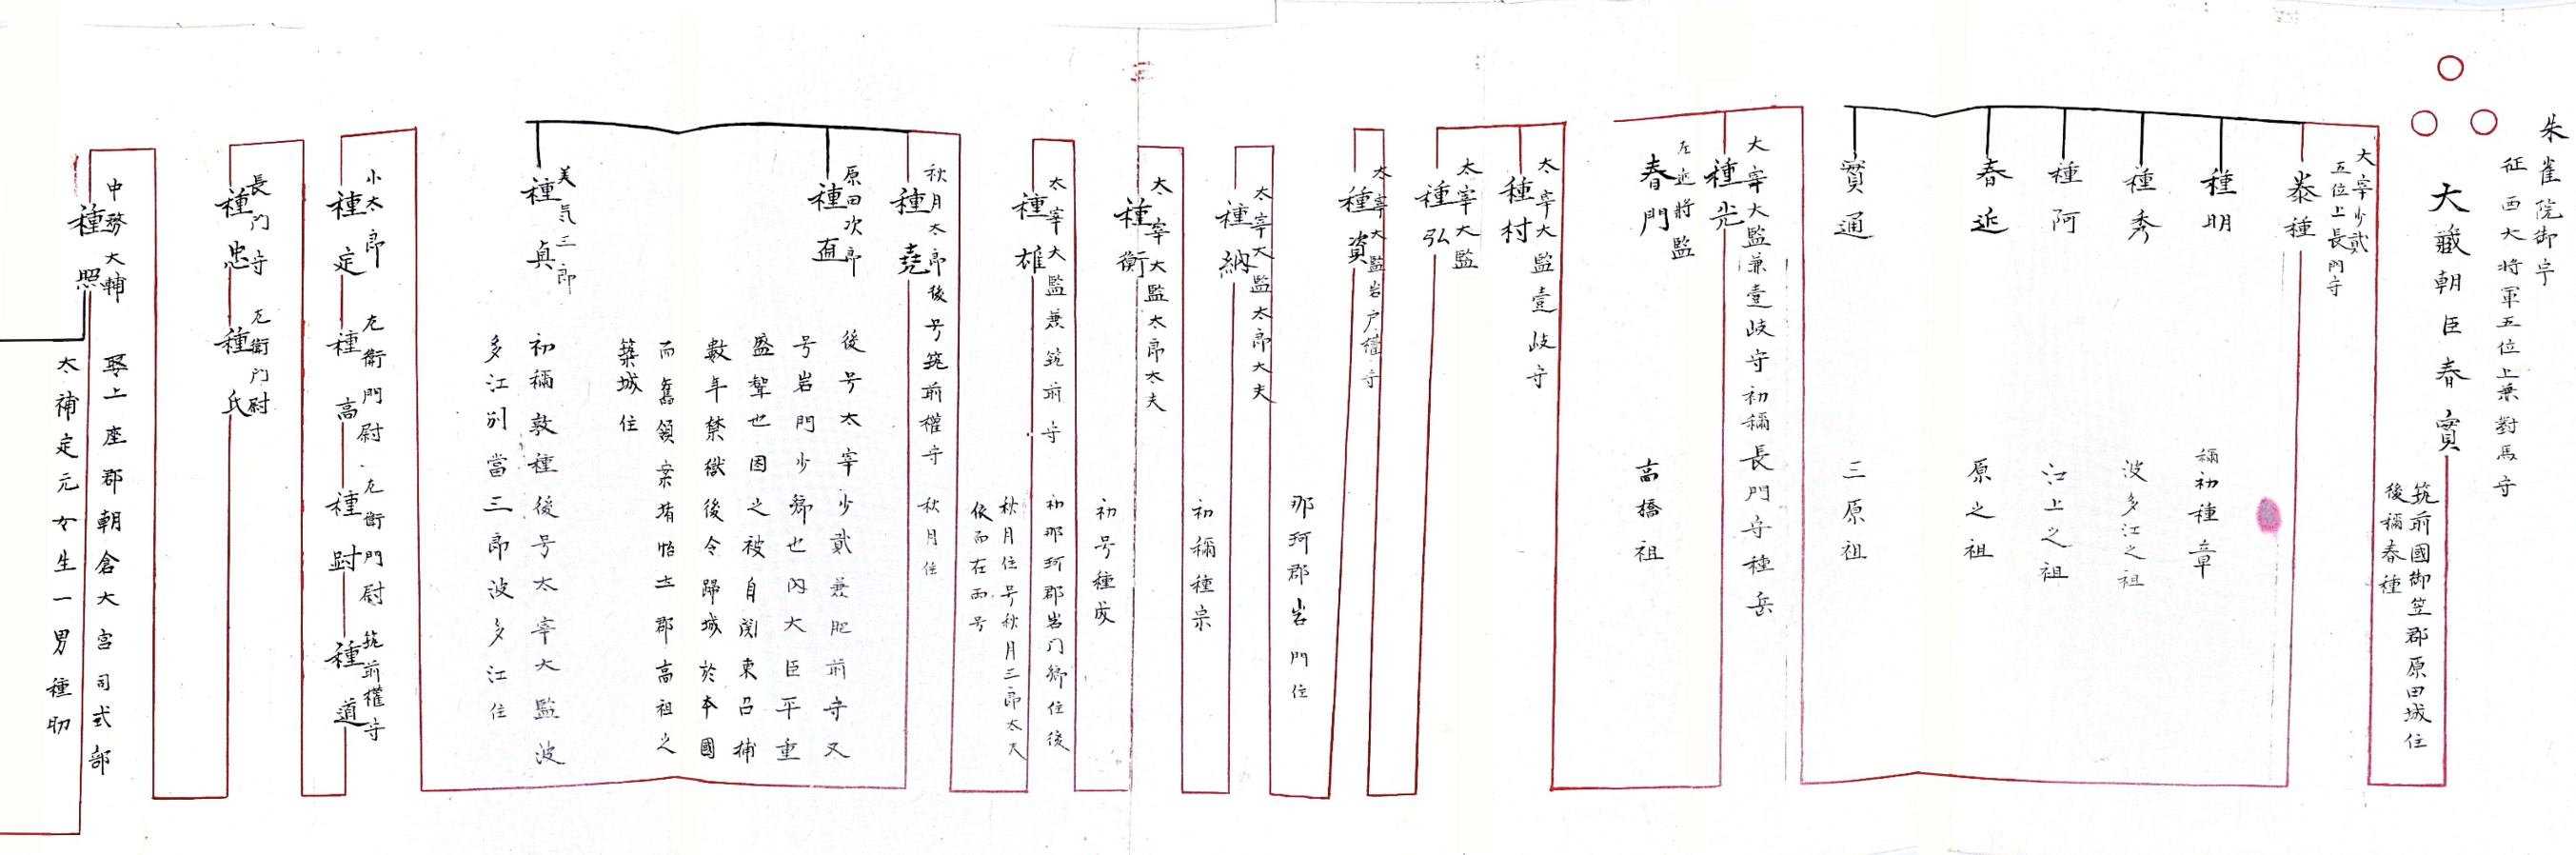 朱雀院御宇
征西大将軍五位上兼對馬守
大藏朝臣春實
筑前國御笠郡原田城住
後稱春種
大宰少貳
五位上長門守
泰種
種明
稱初種章
種秀
波多江之祖
種阿
江上之祖
春近
原之祖
實通
三原祖
大宰大監兼壹岐守初稱長門守種岳
種光
左近將監
春門
高橋祖
太宰大監壹岐守
種村
太宰大監
種弘
太宰大監岩戸權守
種資
那珂郡岩門住
太宰大監太郎大夫
種納
初稱種宗
太宰大監太郎太夫
種衡
初号種成
太宰大監兼筑前守
種雄
初那珂郡岩门郷住後
秋月住号秋月三郎太夫
依而在両号
秋月太郎後号筑前權守
種堯
秋月住
原田次郎
種直
後号太宰少貳兼肥前守又
号岩門少郷也内大臣平重
盛聟也因之被自関東召捕
數年禁獄後令歸城於本國
而舊領案堵怡土郡高祖之
築城住
美気三郎
種貞
初稱敦種後号太宰大監波
多江別當三郎波多江住
小太郎
種定
左衛門尉
種高
左衛門尉
種尌
筑前權守
種道
長门守
種忠
左衛门尉
種氏
中務大輔
種照
娶上座郡朝倉大宮司式部
太補定元女生一男種㔟